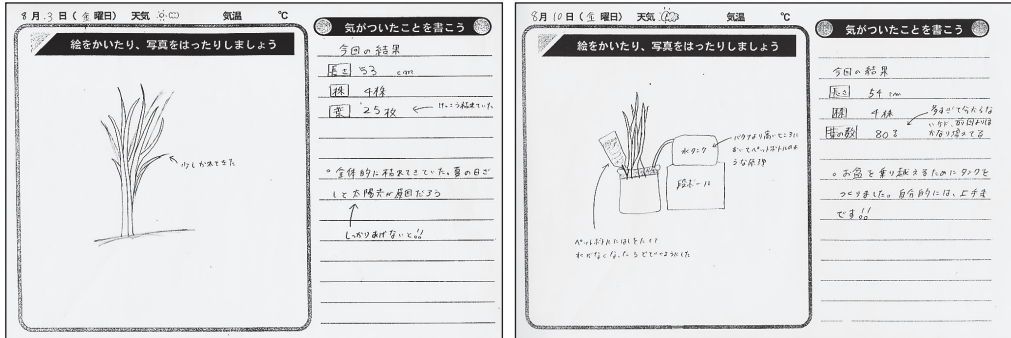 8月.3日(金曜日) 天気 気温 ℃
絵をかいたり、写真をはったりしましょう
少しかれてきた
気がついたことを書こう
今回の結果
長さ 53 cm
株 4株
葉 25枚 ← けっこう枯れていた
。全体的に枯れてきていた。夏の日ざ
しと太陽光が原因だろう
しっかりあげないと!!
8月10日(金曜日) 天気 気温 ℃
絵をかいたり、写真をはったりしましょう
水タンク
段ボール
バケツより高いところに
おいてペットボトルのよ
うな原理
ペットボトルに
水がなくなったら
気がついたことを書こう
今回の結果
長さ 54 cm
株 4株
葉の数 80
多すぎて
いケド、前回よりは
かなり増えてる
。お盆を乗り越えるためにタンクを
つくりました。自分的には、上手ま
です!!